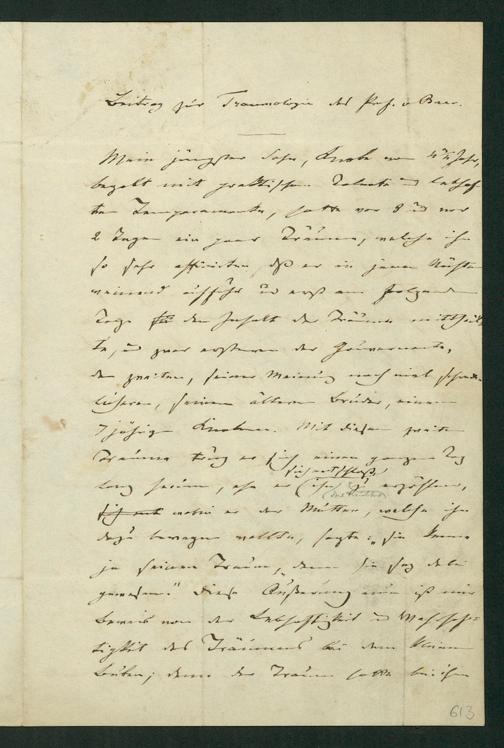 Beitrag zur Traumologie des Prof. v Baer.
Mein jüngster Sohn, Knabe von 4 1/2 Jahr,
begabt mit praktischem Talente u lebhaf-
tem Temperamente, hatte vor 8 u vor
2 Tagen ein paar Träume, welche ihn
so sehr afficirten daß er in jenen Nächten
weinend auffuhr und erst am folgenden
Tage den Inhalt der Träume mittheil-
te, u zwar ersteren der Gouvernante,
den zweiten, seiner Meinung nach viel
licheren, seinem älteren Bruder, einem
7jährigen Knaben. Mit diesem zweiten
Traume trug er sich einen ganzen Tag
sich entschloß
lang herum, ehe er ihn zu erzählen,
wobei er der Mutter, welche ihn
dazu bewegen wollte, sagte: „Sie kenne
ja seinen Traum, denn sie sey dabei
gewesen." Diese Äußerung nun ist mir
Beweis von der Lebhaftigkeit u Wahrhaf-
tigkeit des Träumens bei dem kleinen
Buben; denn der Traum hatte bei ihm
613